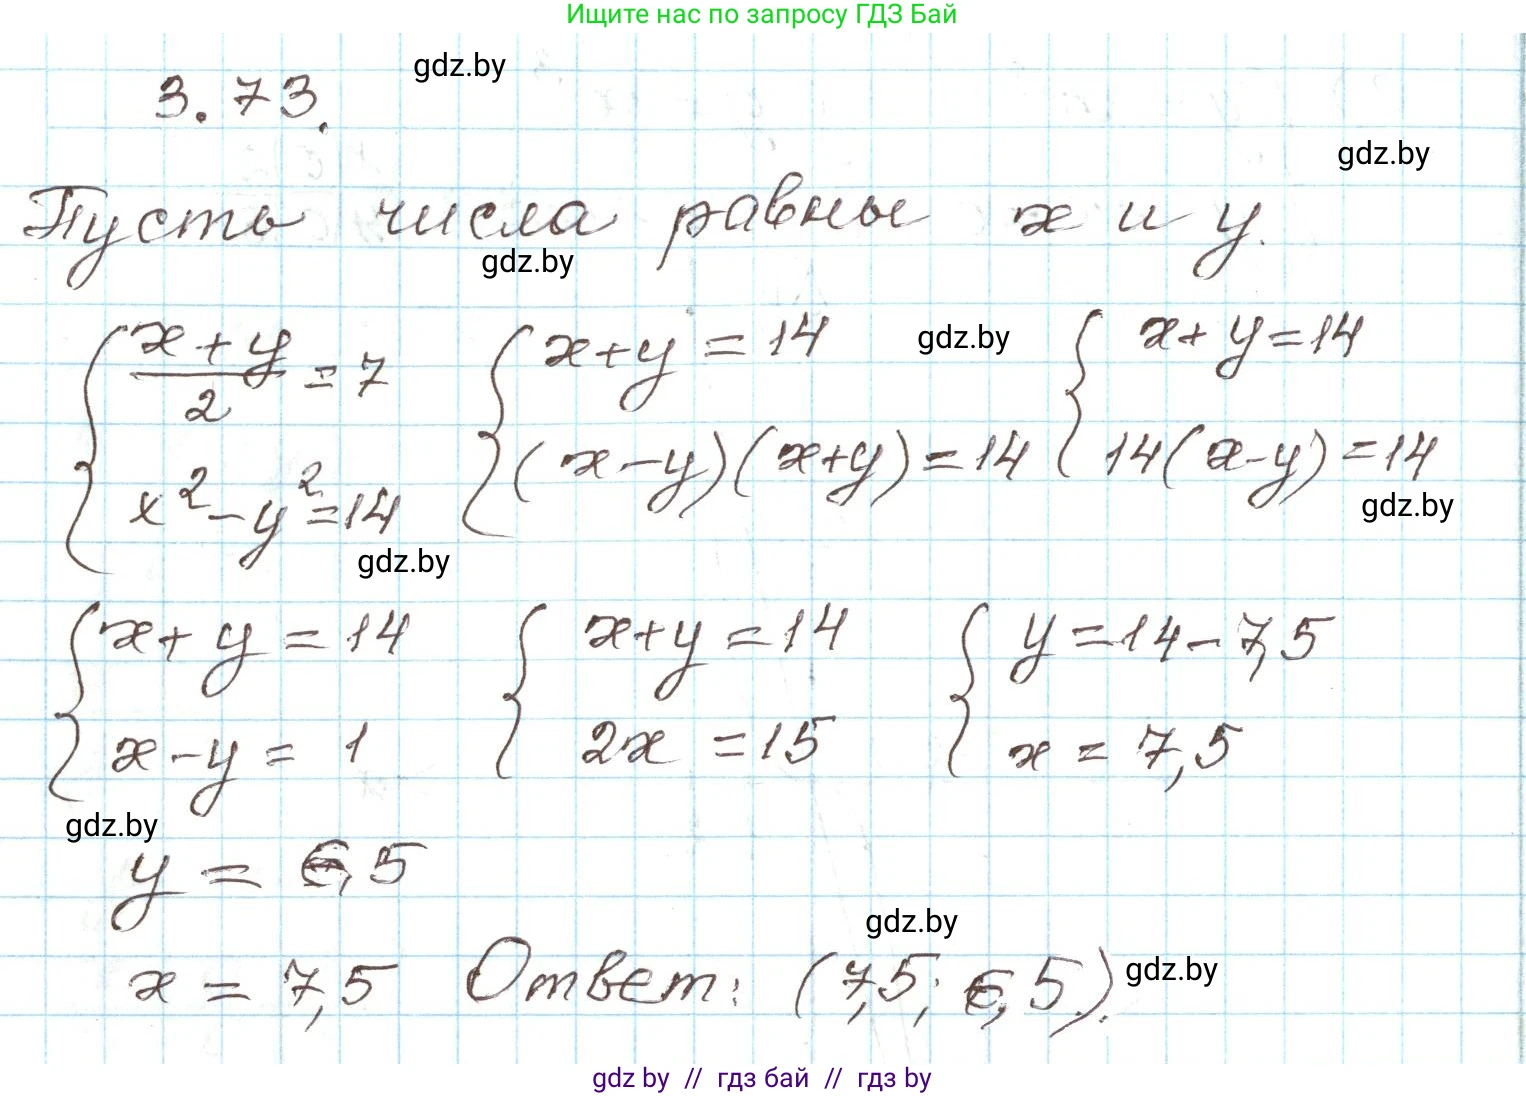 Ищите нас по запросу ГДЗ Бай
gdz.by
3.73.
gdz.by
Пусть числа равны x и y.
gdz.by
{ (x+y)/2 = 7 { x+y = 14 gdz.by { x+y=14
x²-y²=14 (x-y)(x+y)=14 14(x-y)=14
gdz.by
gdz.by
{ x+y=14 { x+y=14 { y=14-7,5
x-y= 1 2x =15 x = 7,5
gdz.by
y = 6,5
gdz.by
x = 7,5 Ответ: (7,5; 6,5). gdz.by
gdz by // гдз бай // гдз by